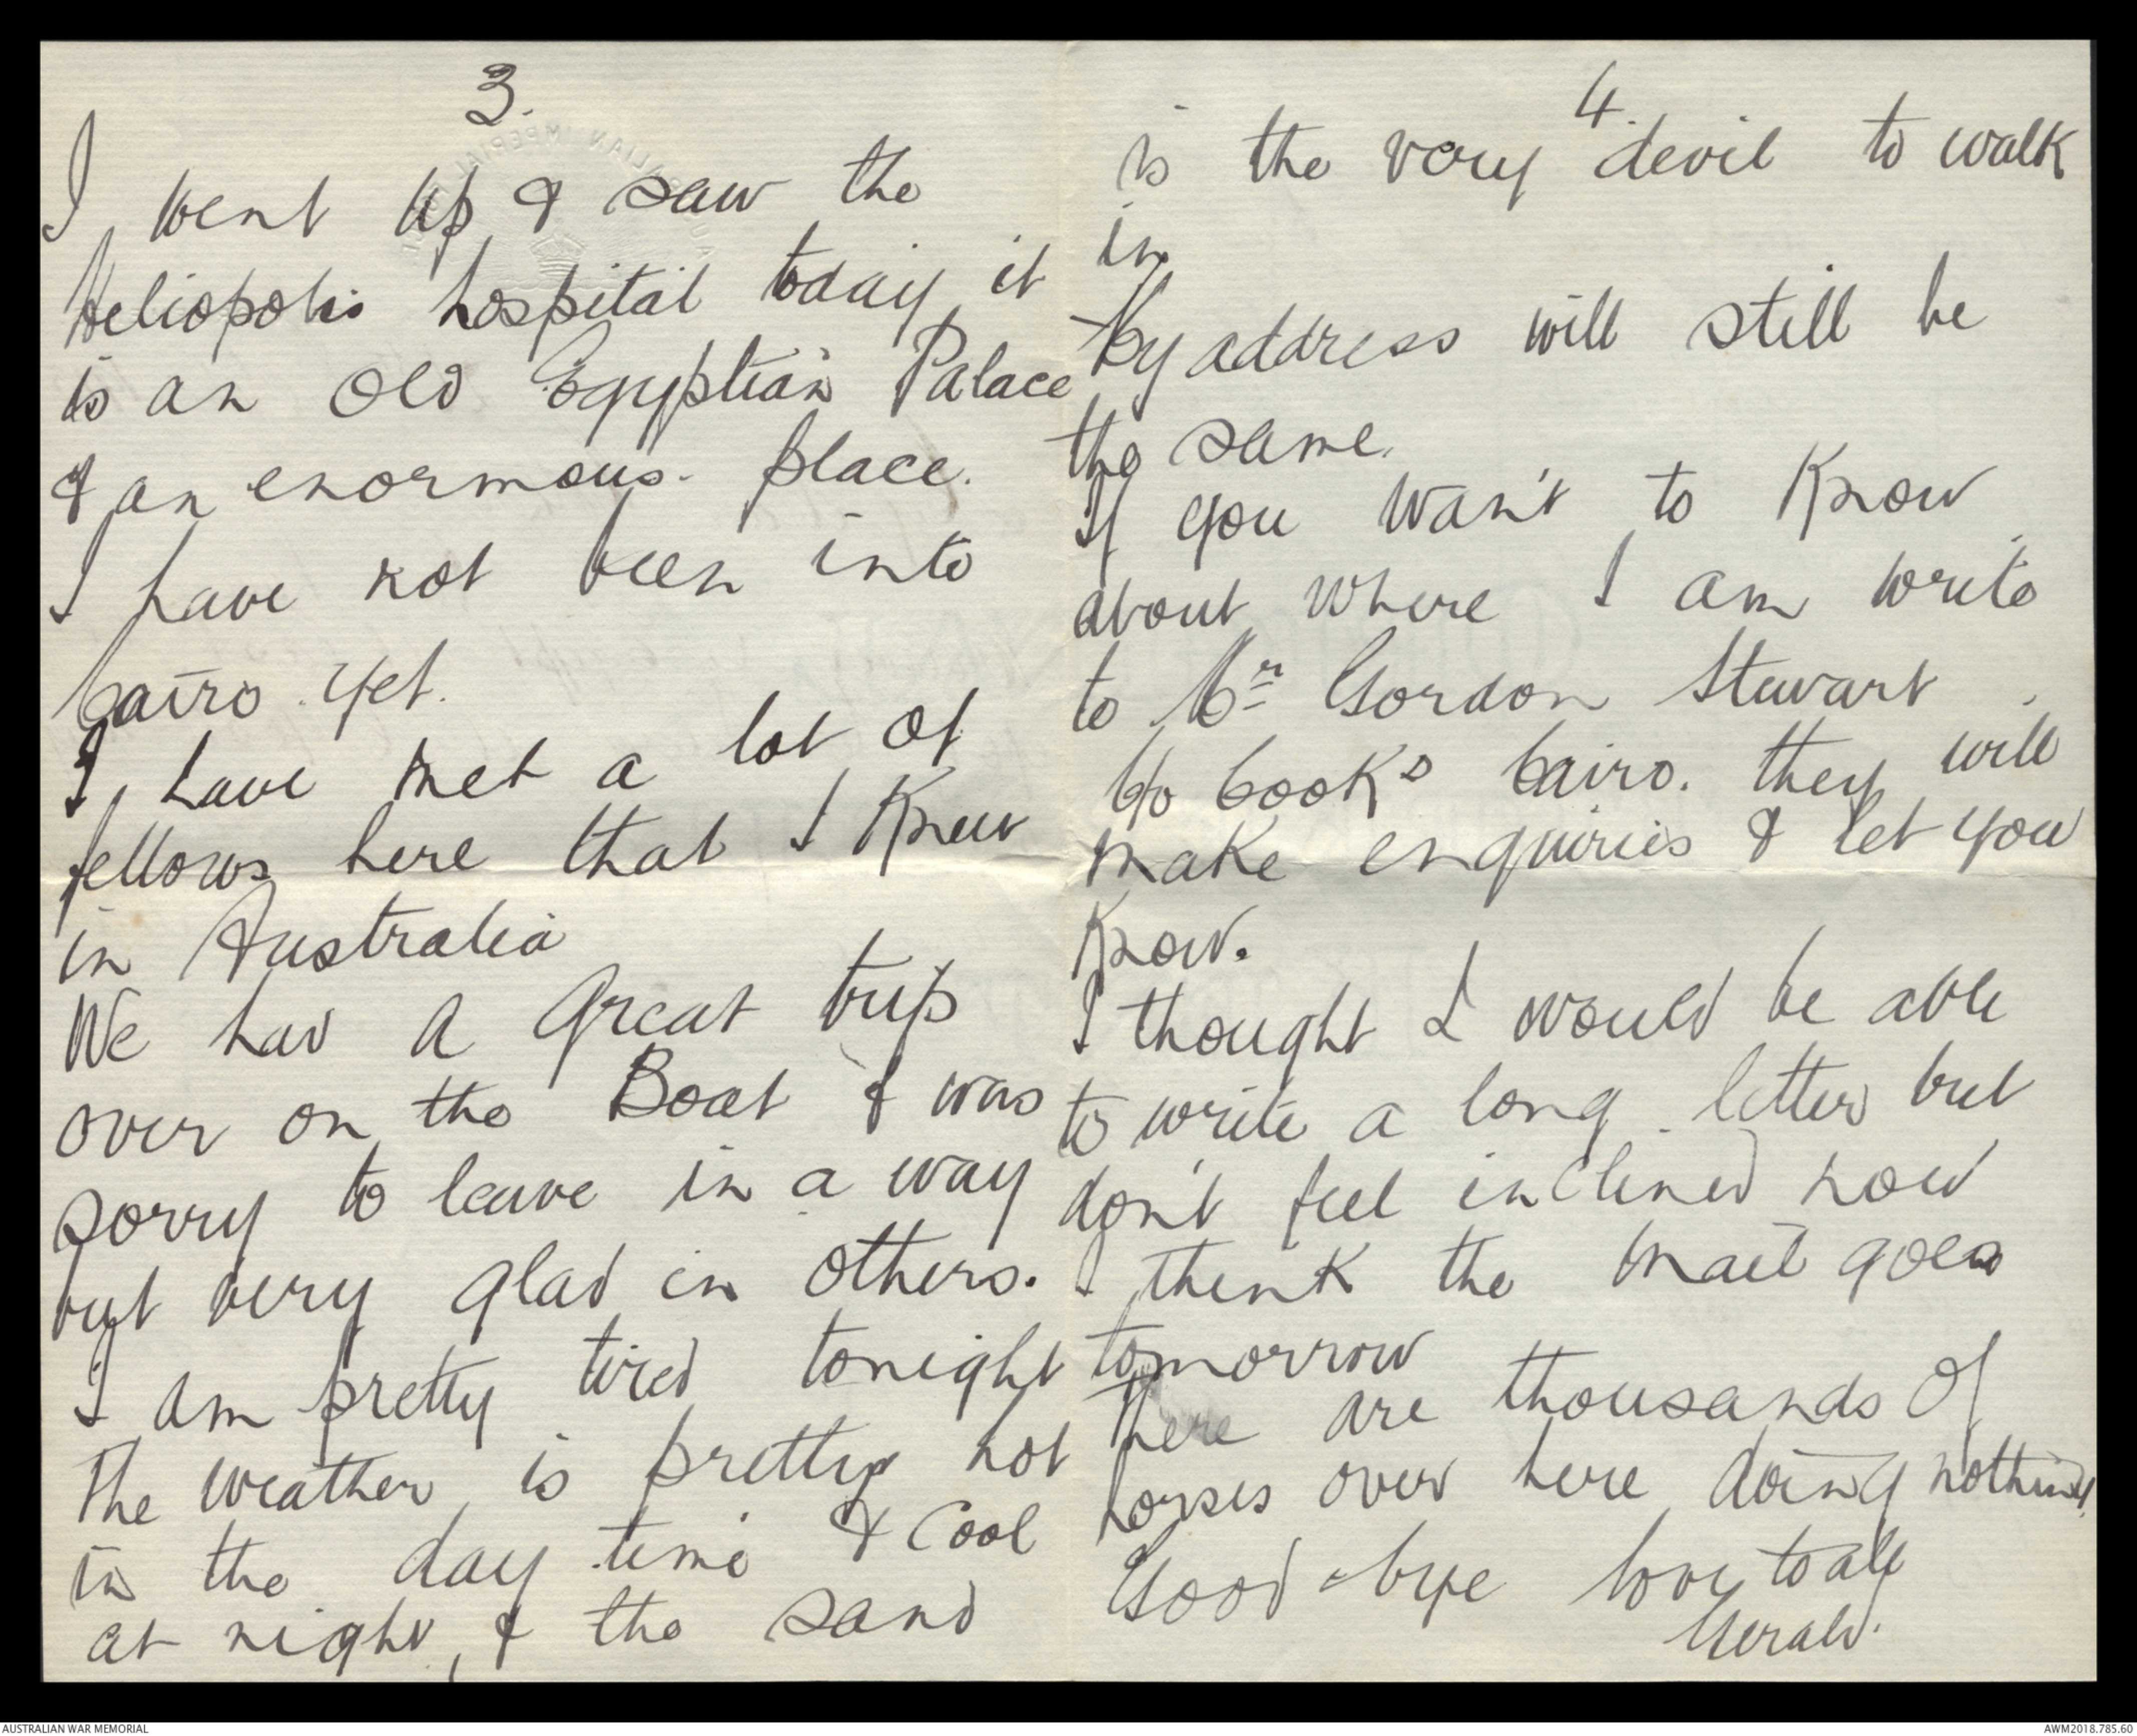 3.
I went up & saw the
Heliopolis hospital today it
is an old Egyptian Palace
& an enormous. place.
I have not been into
Cairo yet.
I have met a lot of
fellows here that I knew
in Australia
We had a great trip
over on the Boat & was
sorry to leave in a way
but very glad in others.
I am pretty tired tonight
The weather is pretty hot
in the day time & cool
at night, & the sand
4.
is the very devil to walk
in.
My address will still be
the same.
If you wan't to know
about where I am write
to Mr Gordon Stewart
C/o Cooks Cairo. they will
make enquiries & let you
know.
I thought I would be able
to write a long letter but
don't feel inclined now
I think the mail goes
tomorrow
There are thousands of
horses over here doing nothing.
Good-bye love to all
Gerald.
AUSTRALIAN WAR MEMORIAL
AWM2018.785.60